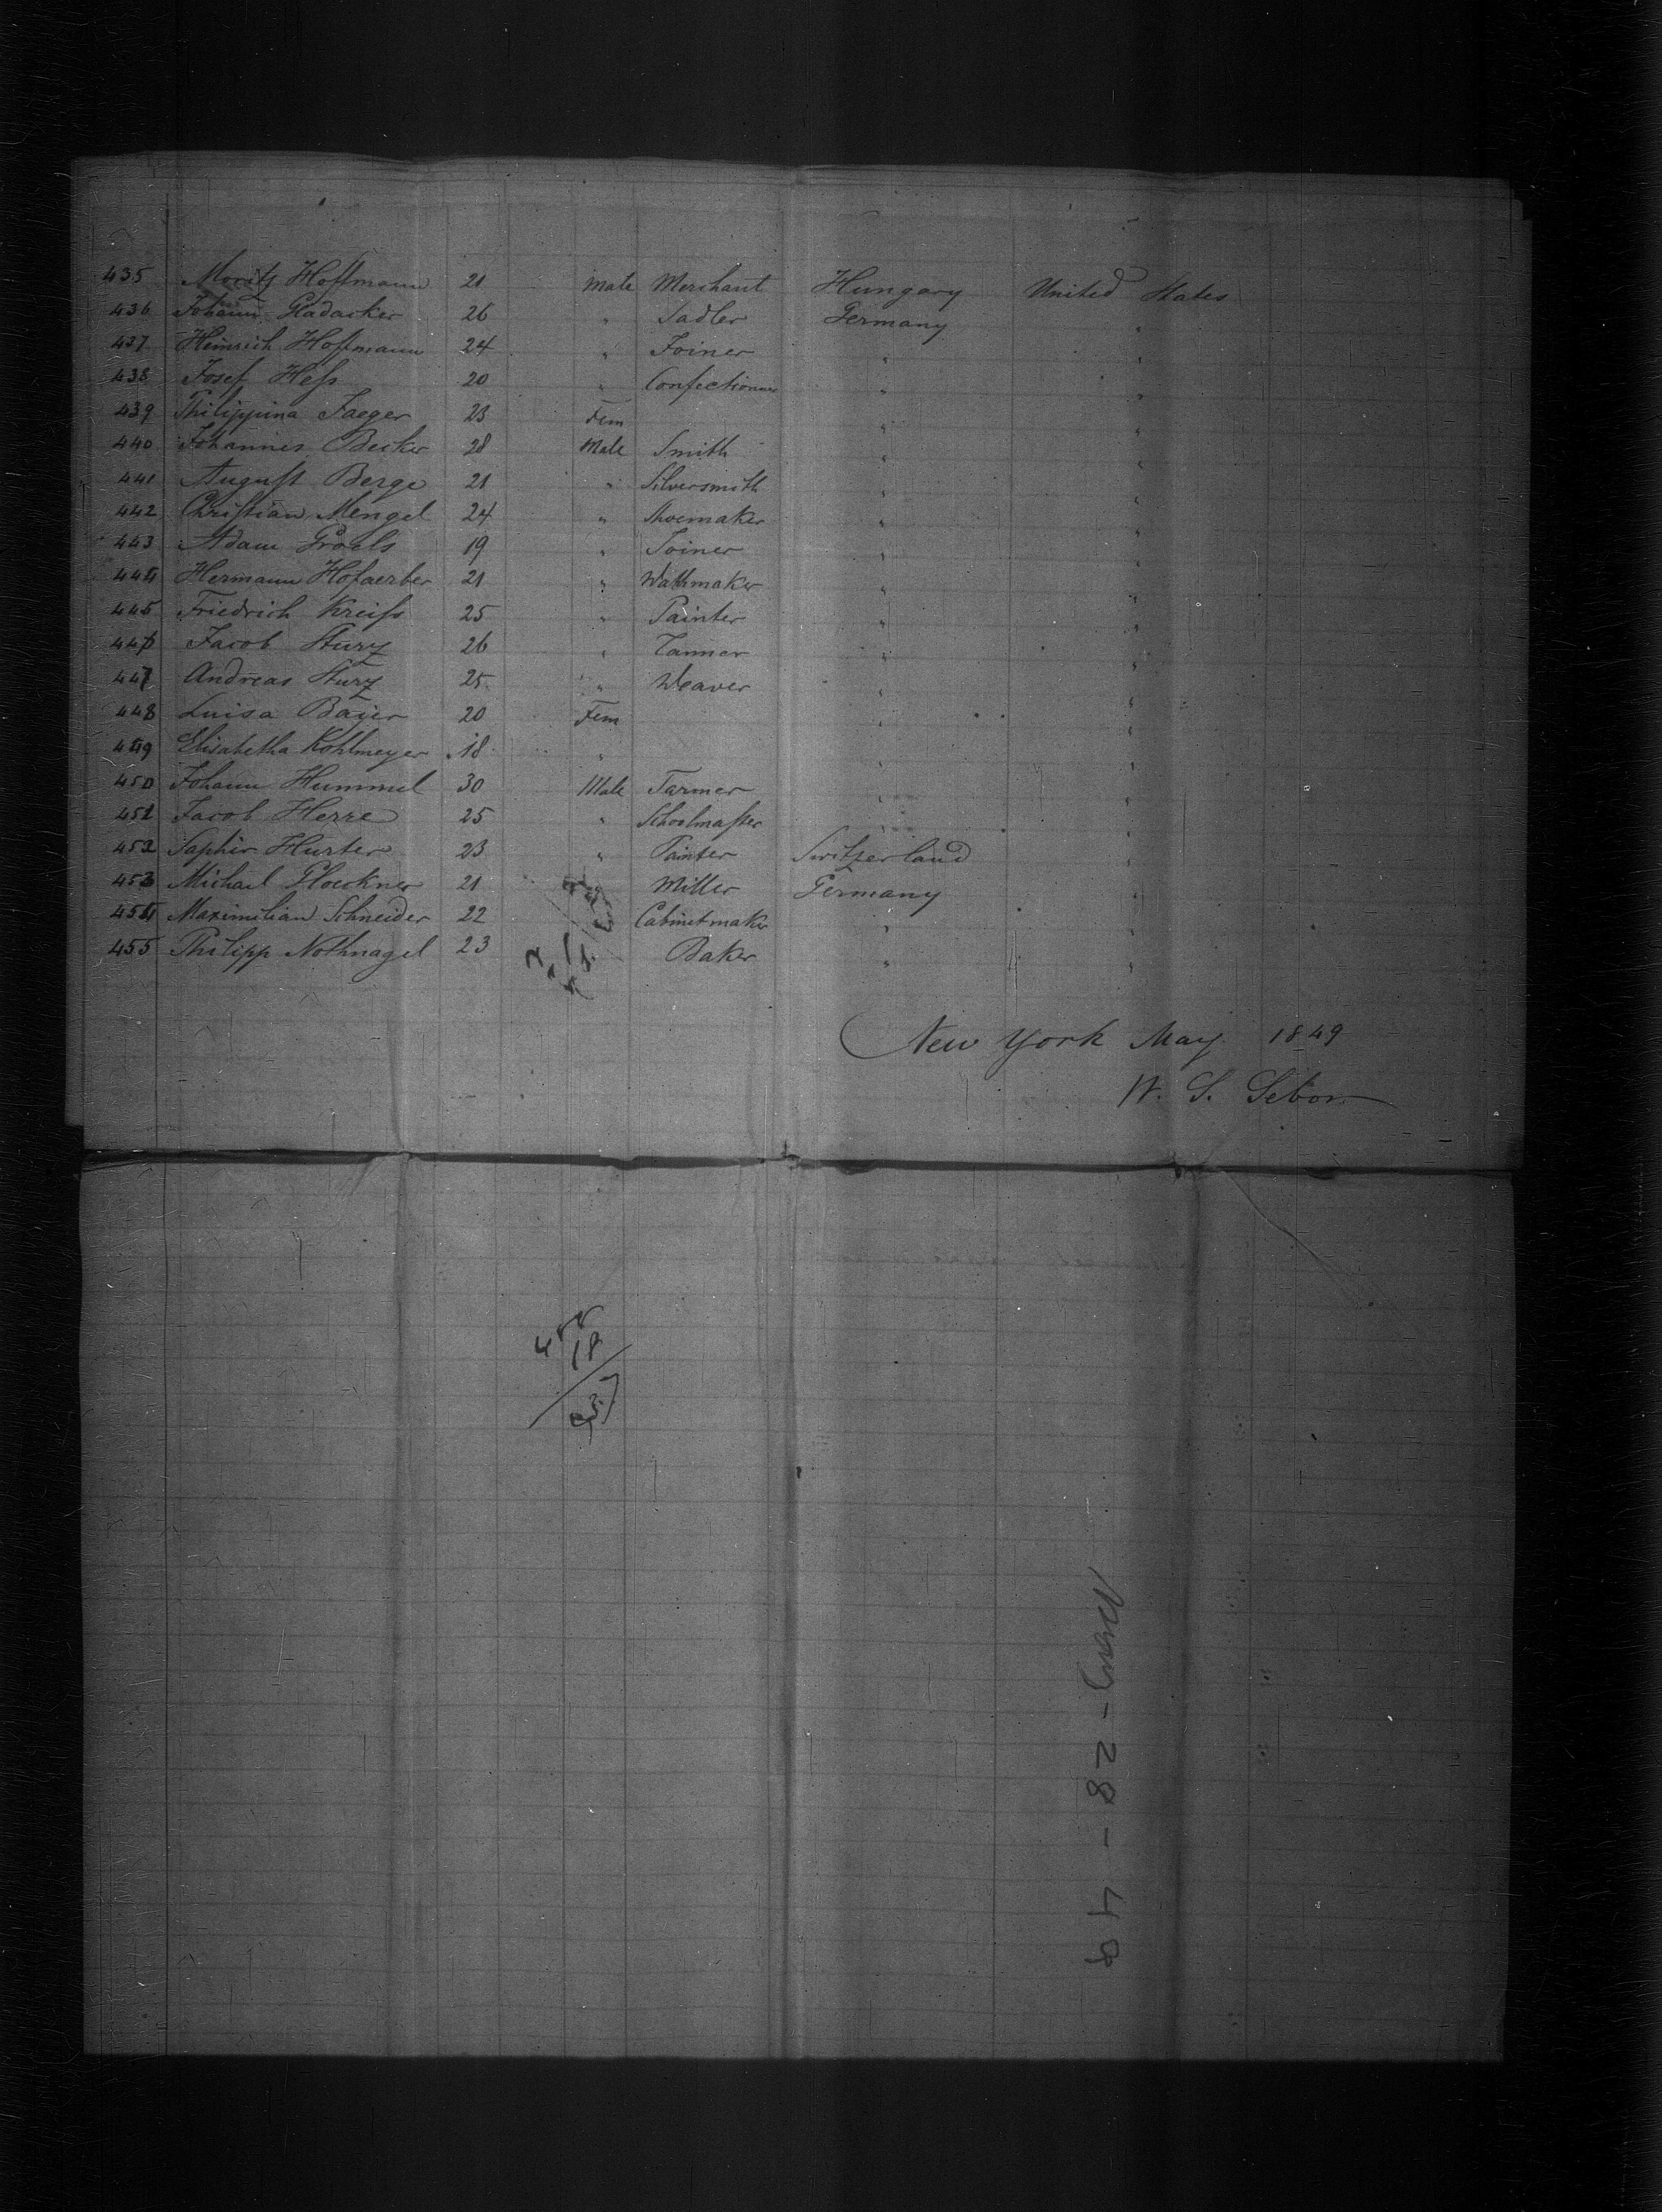 435 Moritz Hoffmann 21 Male Merchant Hungary United States
436 Johann Gladacker 26 " Sadler Germany "
437 Heinrich Hoffmann 24 " Joiner " "
438 Josef Heſs 20 " Confectioner " "
439 Philippina Jaeger 23 Fem " "
440 Johannes Becker 28 Male Smith " "
441 Auguſt Berge 21 " Silversmith " "
442 Chriſtian Mengel 24 " Shoemaker " "
443 Adam 19 " Joiner " "
444 Hermann Hofaerber 21 " Wathmaker " "
445 Friedrich Kreiſs 25 " Painter " "
446 Jacob Sturz 26 " Tanner " "
447 Andreas Sturz 25 " Weaver " "
448 Luisa Baijer 20 Fem " "
449 Elisabetha Kohlmeyer 18 " " "
450 Johann Hummel 30 Male Farmer " "
451 Jacob Herre 25 " Schoolmaſter "
452 Saphir Hurter 23 " Painter Switzerland "
453 Michael Gloeckner 21 " Miller Germany "
454 Maximilian Schneider 22 Cabinetmaker " "
455 Philipp Nothnagel 23 Baker " "
New York May 1849
W. S. Sebor
455
18
437
May - 28 - 49